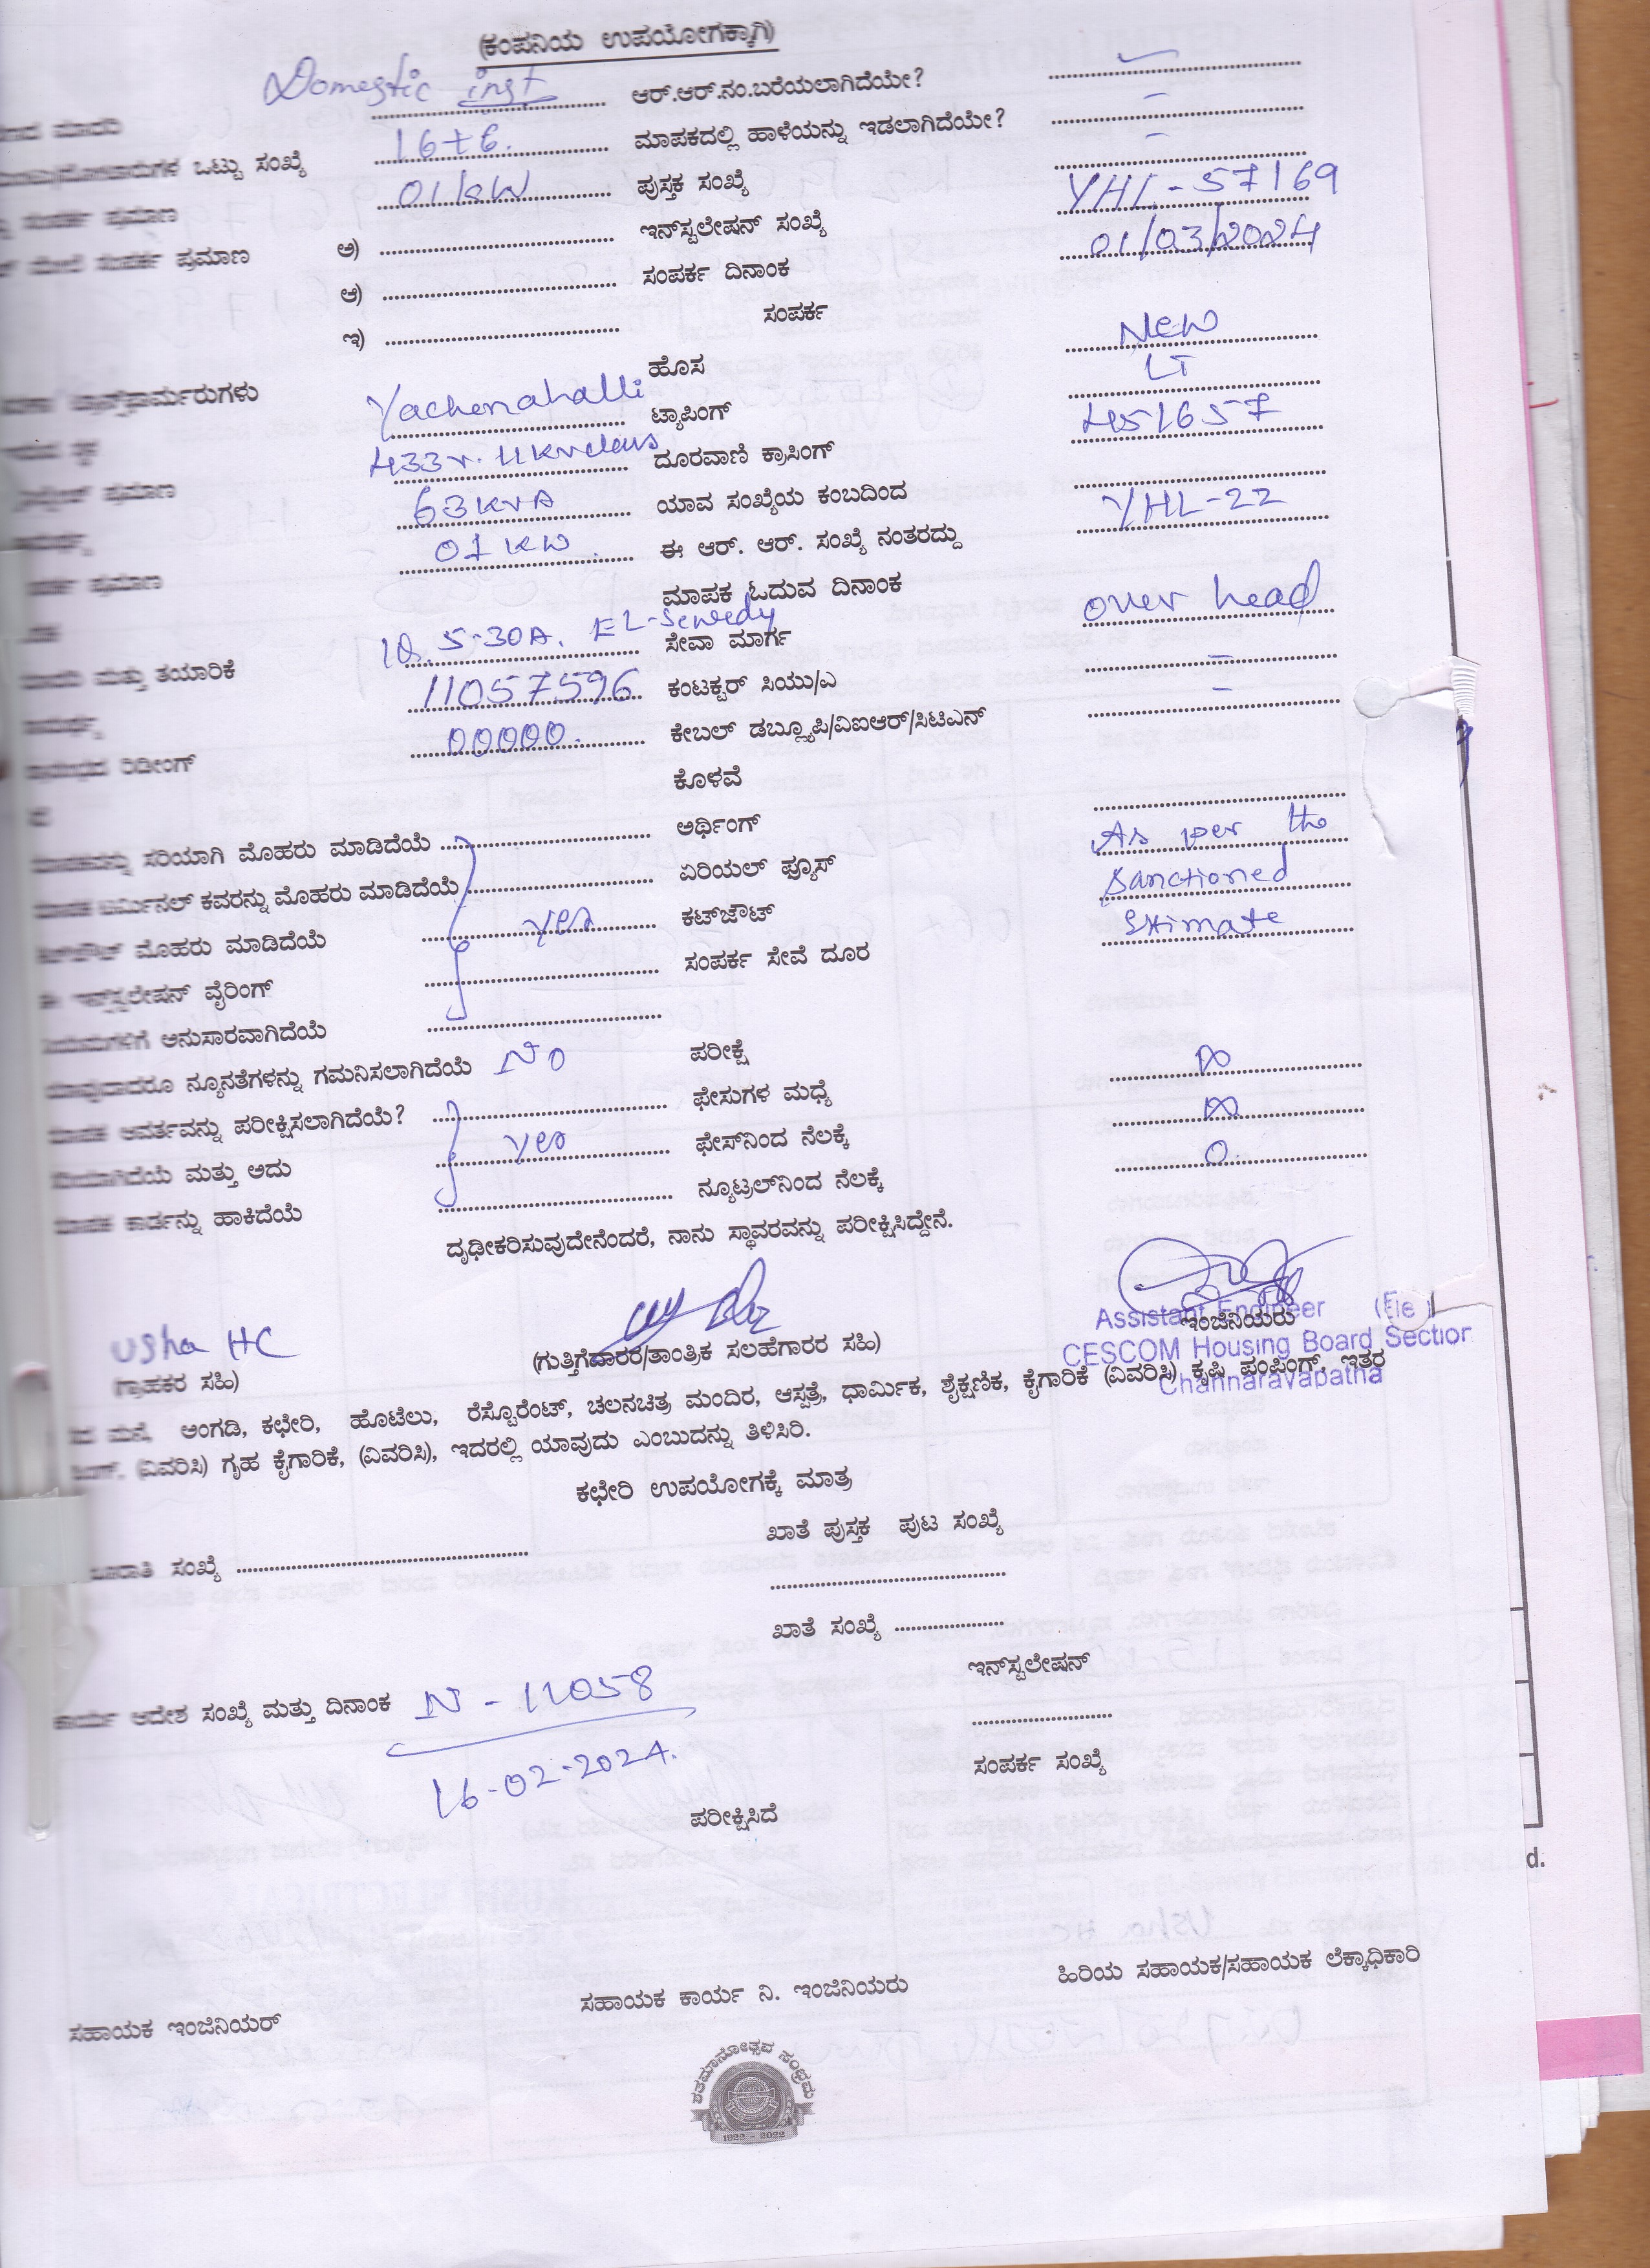 (ಕಂಪನಿಯ ಉಪಯೋಗಕ್ಕಾಗಿ)
Domestic inst ಆರ್.ಆರ್.ನಂ.ಬರೆಯಲಾಗಿದೆಯೇ?
ಮಾದರಿ 16+6. ಮಾಪಕದಲ್ಲಿ ಹಾಳೆಯನ್ನು ಇಡಲಾಗಿದೆಯೇ? –
ಒಟ್ಟು ಸಂಖ್ಯೆ 01KW ಪುಸ್ತಕ ಸಂಖ್ಯೆ –
ಸಂಪರ್ಕ ಪ್ರಮಾಣ ಅ) ಇನ್‌ಸ್ಟಲೇಷನ್ ಸಂಖ್ಯೆ YHL-57169
ಸಂಪರ್ಕ ಪ್ರಮಾಣ ಆ) ಸಂಪರ್ಕ ದಿನಾಂಕ 01/03/2024
ಇ) ಸಂಪರ್ಕ
ಹೊಸ NEW
Yachenahalli ಟ್ಯಾಪಿಂಗ್ LT
433v. 11kv ದೂರವಾಣಿ ಕ್ರಾಸಿಂಗ್ 451657
ಪ್ರಮಾಣ 63KVA ಯಾವ ಸಂಖ್ಯೆಯ ಕಂಬದಿಂದ
01KW. ಈ ಆರ್. ಆರ್. ಸಂಖ್ಯೆ ನಂತರದ್ದು YHL-22
ಪ್ರಮಾಣ ಮಾಪಕ ಓದುವ ದಿನಾಂಕ
5-30A. EL-Sewedy ಸೇವಾ ಮಾರ್ಗ over head
ಮತ್ತು ತಯಾರಿಕೆ 11057596 ಕಂಟಕ್ಟರ್ ಸಿಯು/ಎ –
00000. ಕೇಬಲ್ ಡಬ್ಲ್ಯೂಪಿ/ವಿಐಆರ್/ಸಿಟಿಎನ್ –
ರಿಡೀಂಗ್ ಕೊಳವೆ
ಸರಿಯಾಗಿ ಮೊಹರು ಮಾಡಿದೆಯೆ ಅರ್ಥಿಂಗ್ As per the
ಟರ್ಮಿನಲ್ ಕವರನ್ನು ಮೊಹರು ಮಾಡಿದೆಯೆ ಏರಿಯಲ್ ಫ್ಯೂಸ್ Sanctioned
ಮೊಹರು ಮಾಡಿದೆಯೆ yes ಕಟ್‌ಔಟ್ Estimate
ಈ ಇನ್‌ಸ್ಟಲೇಷನ್ ವೈರಿಂಗ್ ಸಂಪರ್ಕ ಸೇವೆ ದೂರ
ಅನುಸಾರವಾಗಿದೆಯೆ
ನ್ಯೂನತೆಗಳನ್ನು ಗಮನಿಸಲಾಗಿದೆಯೆ No ಪರೀಕ್ಷೆ
ಪರೀಕ್ಷಿಸಲಾಗಿದೆಯೆ? ಫೇಸುಗಳ ಮಧ್ಯೆ ∞
ಮತ್ತು ಅದು yes ಫೇಸ್‌ನಿಂದ ನೆಲಕ್ಕೆ ∞
ಮಾಪಕ ಕಾರ್ಡನ್ನು ಹಾಕಿದೆಯೆ ನ್ಯೂಟ್ರಲ್‌ನಿಂದ ನೆಲಕ್ಕೆ 0
ದೃಢೀಕರಿಸುವುದೇನೆಂದರೆ, ನಾನು ಸ್ಥಾವರವನ್ನು ಪರೀಕ್ಷಿಸಿದ್ದೇನೆ.
Usha HC
(ಗ್ರಾಹಕರ ಸಹಿ)
(ಗುತ್ತಿಗೆದಾರರ/ತಾಂತ್ರಿಕ ಸಲಹೆಗಾರರ ಸಹಿ)
ಇಂಜಿನಿಯರು
Assistant Engineer (Ele)
CESCOM Housing Board Section
Channarayapatna
ಮನೆ, ಅಂಗಡಿ, ಕಛೇರಿ, ಹೊಟೆಲು, ರೆಸ್ಟೊರೆಂಟ್, ಚಲನಚಿತ್ರ ಮಂದಿರ, ಆಸ್ಪತ್ರೆ, ಧಾರ್ಮಿಕ, ಶೈಕ್ಷಣಿಕ, ಕೈಗಾರಿಕೆ (ವಿವರಿಸಿ) ಕೃಷಿ ಪಂಪಿಂಗ್, ಇತರ
(ವಿವರಿಸಿ) ಗೃಹ ಕೈಗಾರಿಕೆ, (ವಿವರಿಸಿ), ಇದರಲ್ಲಿ ಯಾವುದು ಎಂಬುದನ್ನು ತಿಳಿಸಿರಿ.
ಕಛೇರಿ ಉಪಯೋಗಕ್ಕೆ ಮಾತ್ರ
ಸಂಖ್ಯೆ ಖಾತೆ ಪುಸ್ತಕ ಪುಟ ಸಂಖ್ಯೆ
ಖಾತೆ ಸಂಖ್ಯೆ
ಇನ್‌ಸ್ಟಲೇಷನ್
ಕಾರ್ಯ ಆದೇಶ ಸಂಖ್ಯೆ ಮತ್ತು ದಿನಾಂಕ N - 11058
16-02-2024.
ಸಂಪರ್ಕ ಸಂಖ್ಯೆ
ಪರೀಕ್ಷಿಸಿದೆ
d.
ಸಹಾಯಕ ಇಂಜಿನಿಯರ್ ಸಹಾಯಕ ಕಾರ್ಯ ನಿ. ಇಂಜಿನಿಯರು ಹಿರಿಯ ಸಹಾಯಕ/ಸಹಾಯಕ ಲೆಕ್ಕಾಧಿಕಾರಿ
ಶತಮಾನೋತ್ಸವ ಸಂಭ್ರಮ
1922 - 2022